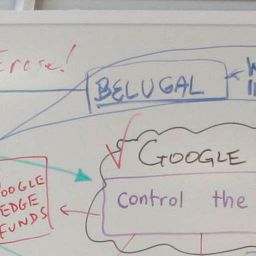 Erase!
BELUGAL
GOOGLE
Control the
OOGLE
EDGE
FUNDS